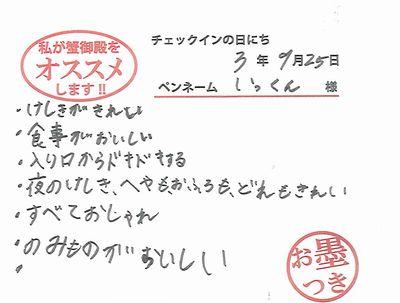 私が蟹御殿を
オススメ
します!!
チェックインの日にち
3年9月25日
ペンネーム いっくん 様
・けしきがきれい
・食事がおいしい
・入り口からドキドキする
・夜のけしき、へやも、おふろも、どれもきれい
・すべておしゃれ
・のみものがおいしい
・
お墨
つき